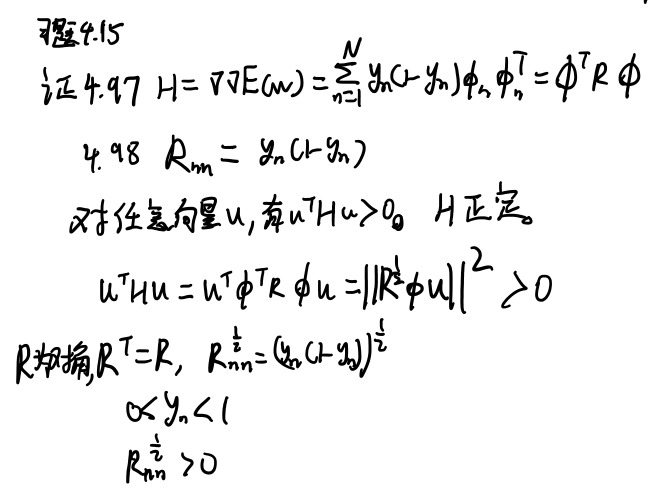 习题4.15
证4.97 H=∇∇E(w)=∑_{n=1}^{N} y_n(1-y_n)ϕ_nϕ_n^T=ϕ^TRϕ
4.98 R_{nn}=y_n(1-y_n)
对任意向量u,有u^THu>0。H正定。
u^THu=u^Tϕ^TRϕu=||R^{1/2}ϕu||^2>0
R为对角,R^T=R, R_{nn}^{1/2}=(y_n(1-y_n))^{1/2}
0<y_n<1
R_{nn}^{1/2}>0